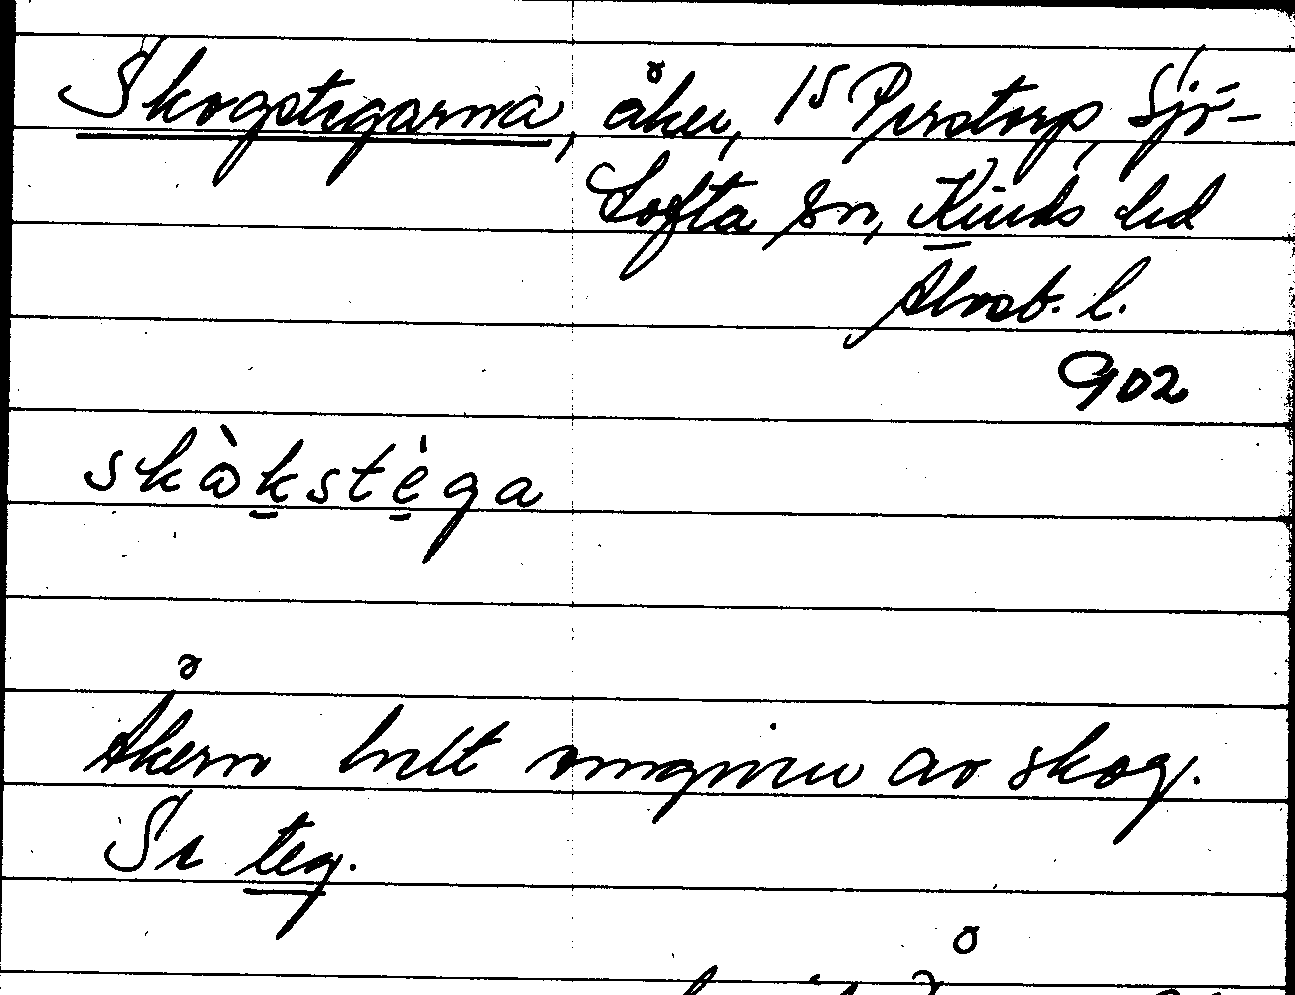 Skogstegarna, åker, 15 Perstorp, Sjö-
tofta sn, Kinds hd
Älvsb. l.
902
skòkstèga
Åkern helt omgiven av skog.
Se teg.